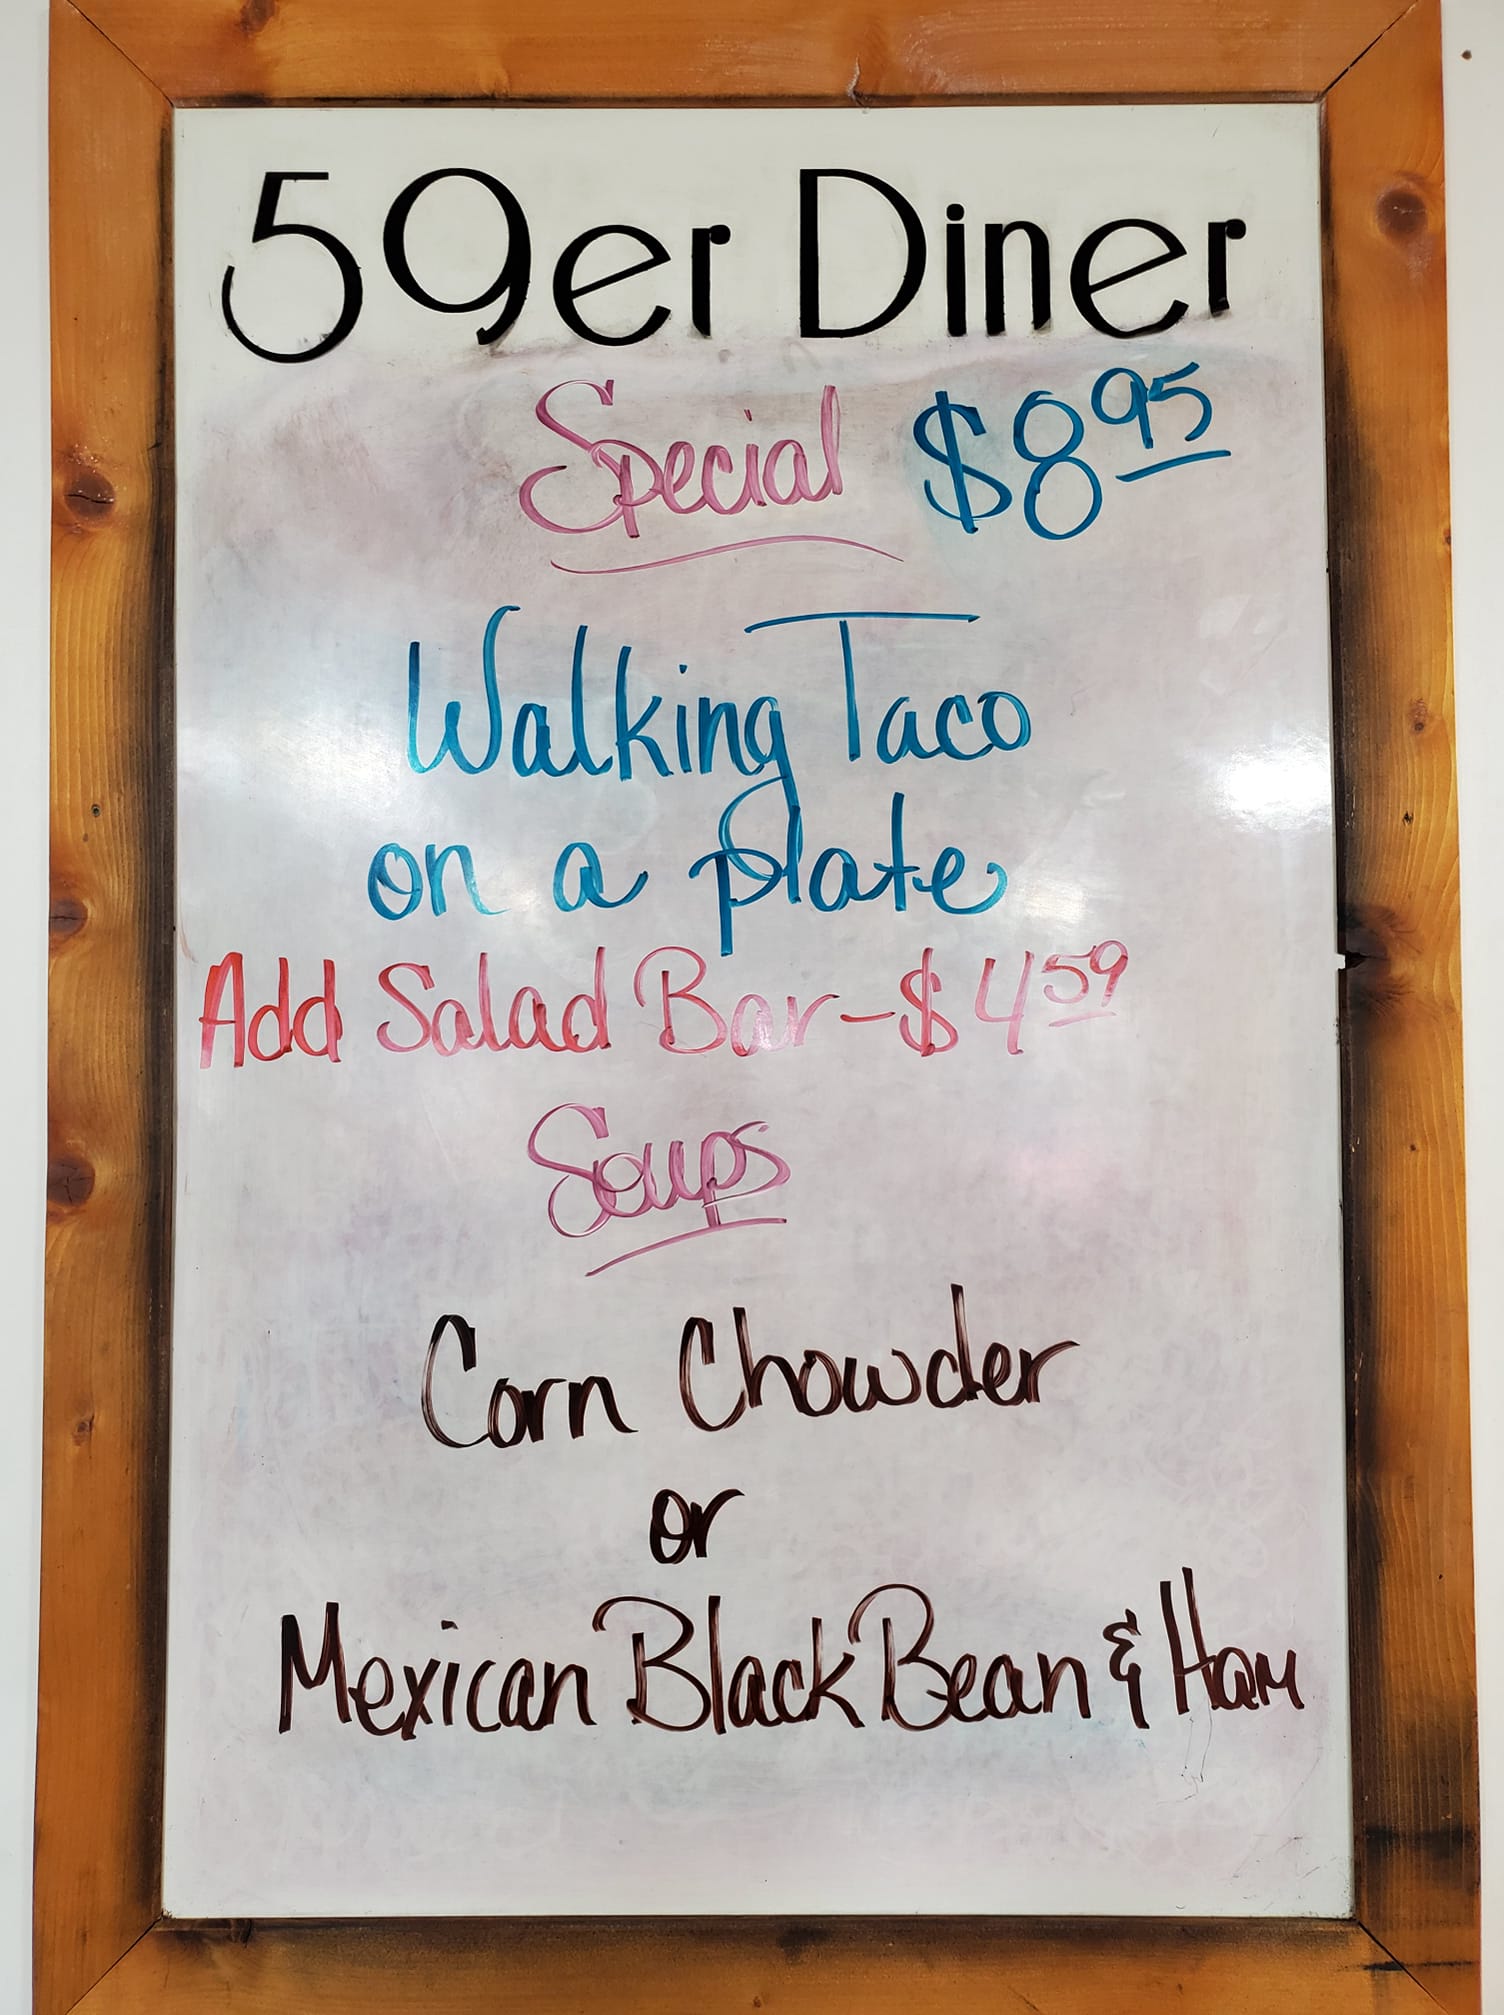 59er Diner
Special $8.95
Walking Taco
on a plate
Add Salad Bar - $4.59
Soups
Corn Chowder
or
Mexican Black Bean & Ham